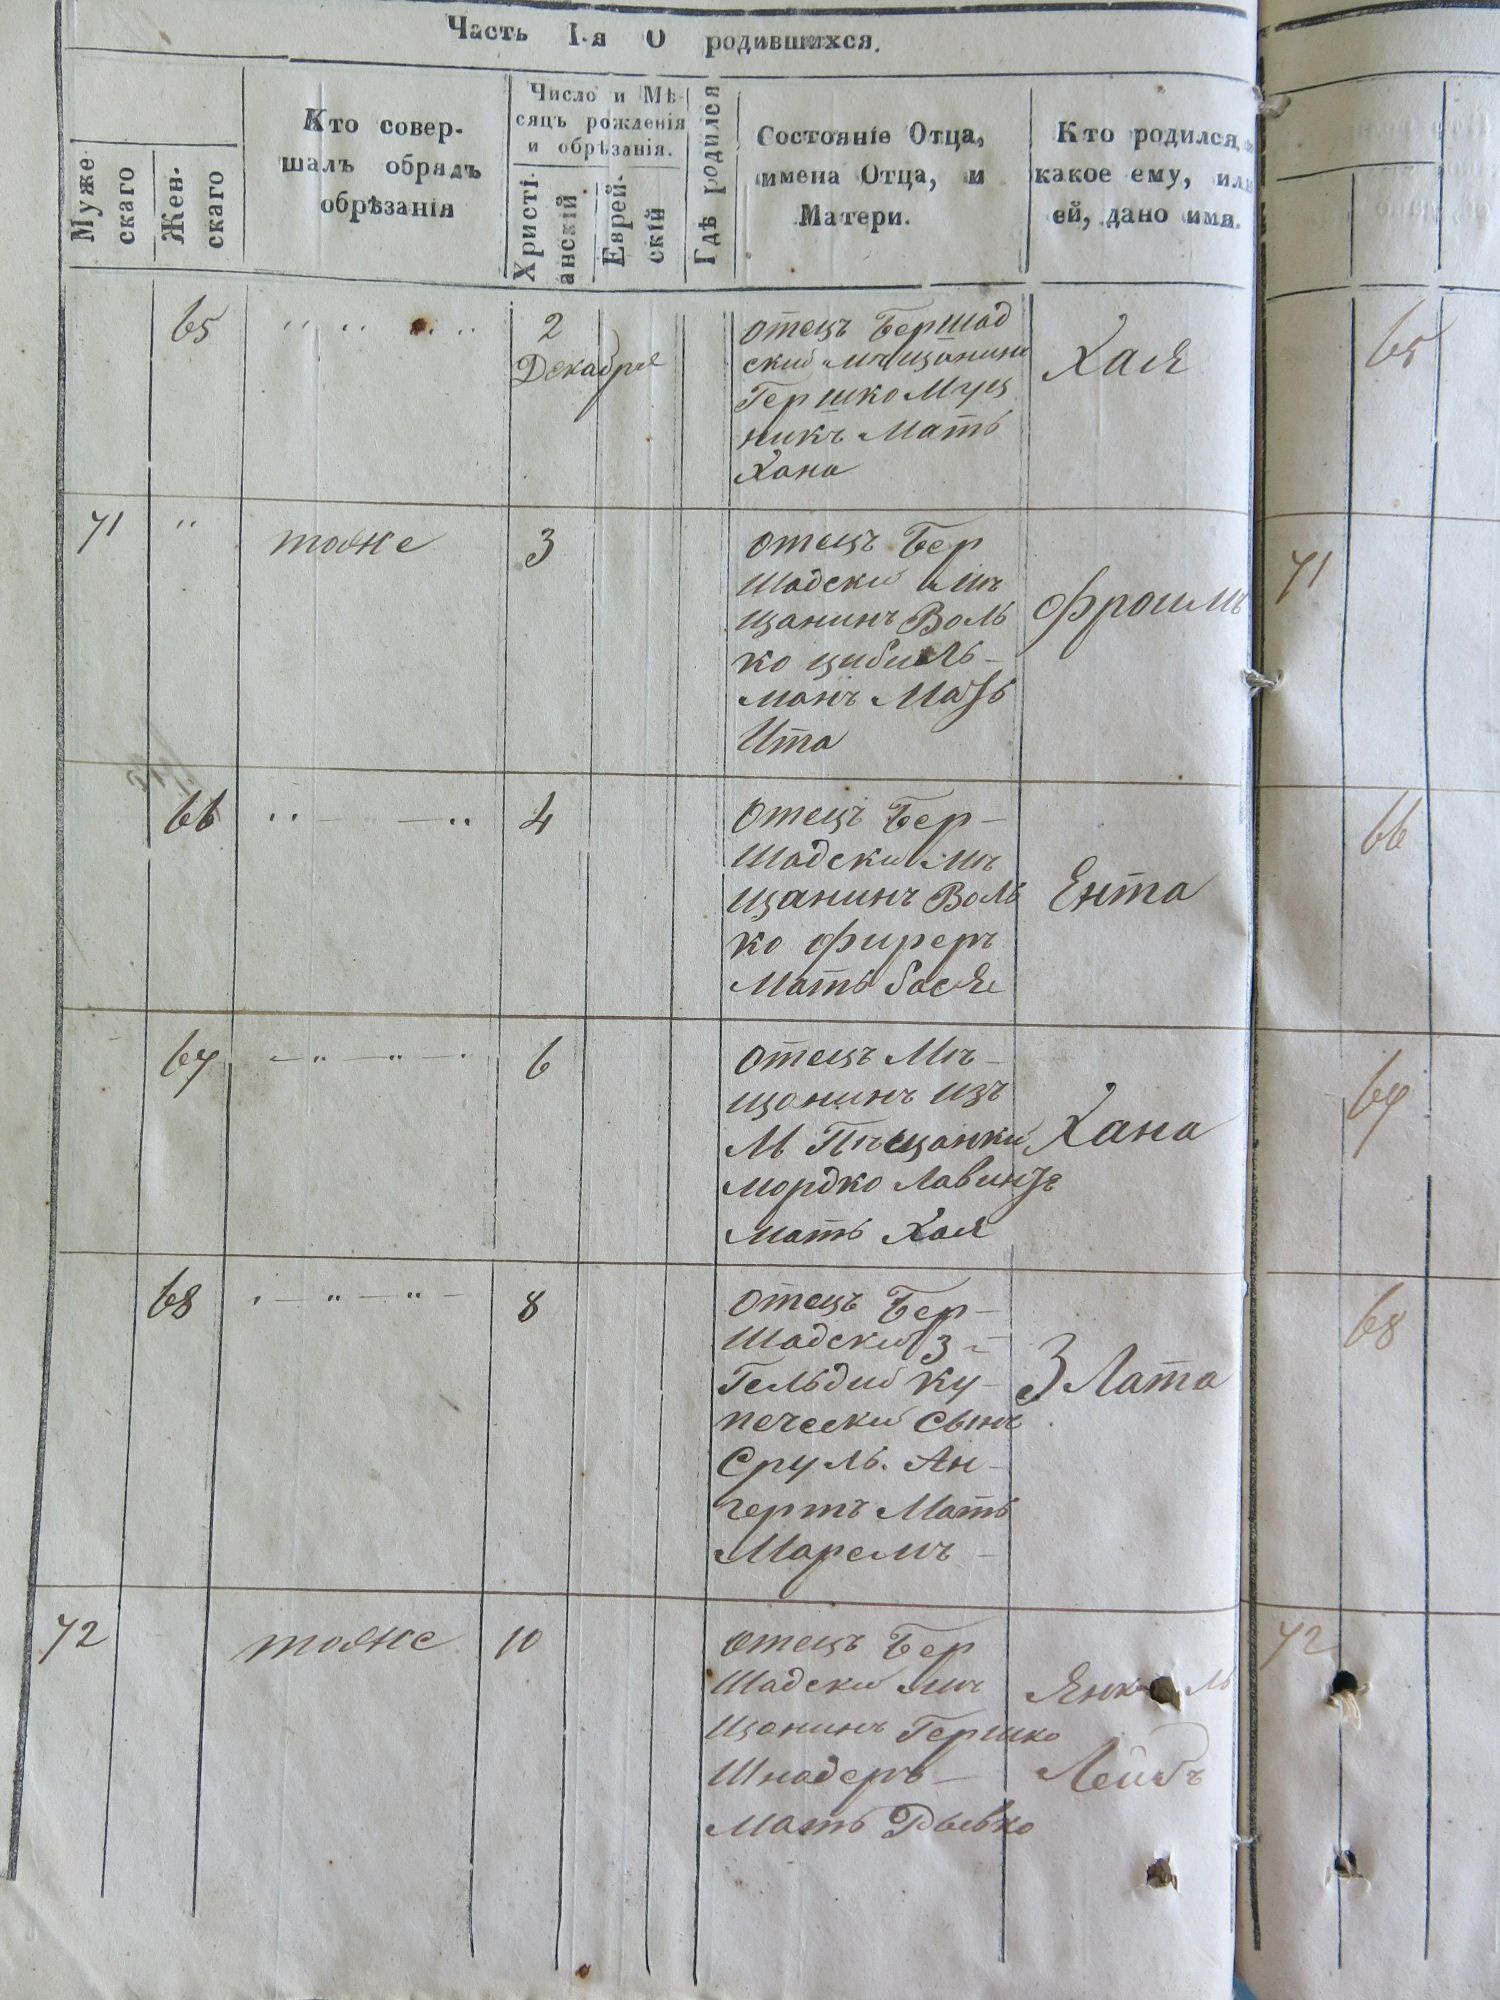 Часть I-я О родившихся.
Мужескаго
Женскаго
Кто совер-
шалъ обрядъ
обрѣзанія
Число и Мѣ-
сяцъ рожденія
и обрѣзанія.
Христі-
анскій
Еврей-
скій
Гдѣ родился
Состояніе Отца,
имена Отца, и
Матери.
Кто родился, и
какое ему, или
ей, дано имя.
65
2
Декабря
отецъ Бершад
ский мѣщанинъ
Гершко Муч
никъ Мать
Хана
Хая
65
71
"
тоже
3
отецъ Бер
шадски мѣ
щанинъ Воль
ко цибуль-
манъ Мать
Ита
Фроимъ
71
66
4
отецъ Бер-
шадски мѣ
щанинъ Воль
ко фиреръ
Мать Бася
Ента
66
67
6
отецъ Мѣ-
щанинъ изъ
М Пѣщанки
мордко Лавинъ
мать Хая
Хана
67
68
8
отецъ Бер-
шадски 3-
Гельдий ку-
печески сынъ
Сруль. Ан-
гертъ Мать
Маремъ-
Злата
68
72
тоже
10
отецъ Бер
шадски мѣ
щанинъ Гершко
Шнадеръ-
мать Рывка
Янкель
Лейбъ
72